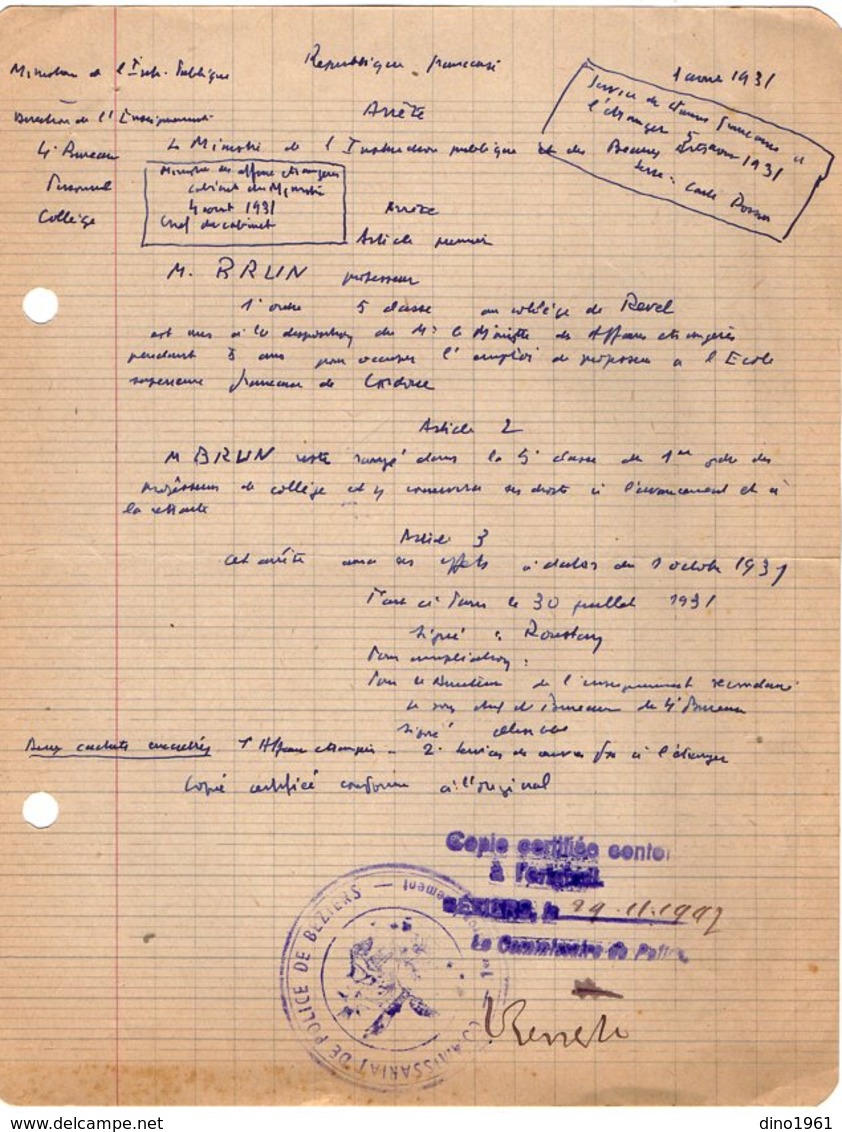 République française
Ministère de l'Inst. Publique
1 août 1931
Direction de l'Enseignement
Arrêté
Service des œuvres françaises à
l'étranger
1931
4e Bureau
Le Ministre de l'Instruction publique et des Beaux Arts
Personnel
Ministère des affaires étrangères
cabinet du Ministre
4 aout 1931
Chef du cabinet
Collège
Arrête
Article premier
M. BRUN professeur
1e ordre 5 classe au collège de Revel
est mis à la disposition de Mr le Ministre des Affaires étrangères
pendant 5 ans pour occuper l'emploi de professeur à l'Ecole
supérieure française de
Article 2
M BRUN reste rangé dans la 5e classe du 1er ordre des
professeurs de collège et y conservera ses droits à l'avancement et à
la retraite
Article 3
Cet arrêté aura ses effets à dater du 1 octobre 1931
Fait à Paris le 30 juillet 1931
Signé : Roustan
Pour ampliation :
Pour le Directeur de l'enseignement secondaire
le sous chef de Bureau du 4e Bureau
signé
Deux cachets encadrés 1° Affaires étrangères - 2° Services des œuvres fses à l'étranger
Copie certifiée conforme à l'original
Copie certifiée confor
à l'original.
BÉZIERS, le 29.11.19
Le Commissaire de Police,
COMMISSARIAT DE POLICE DE BEZIERS
dino1961